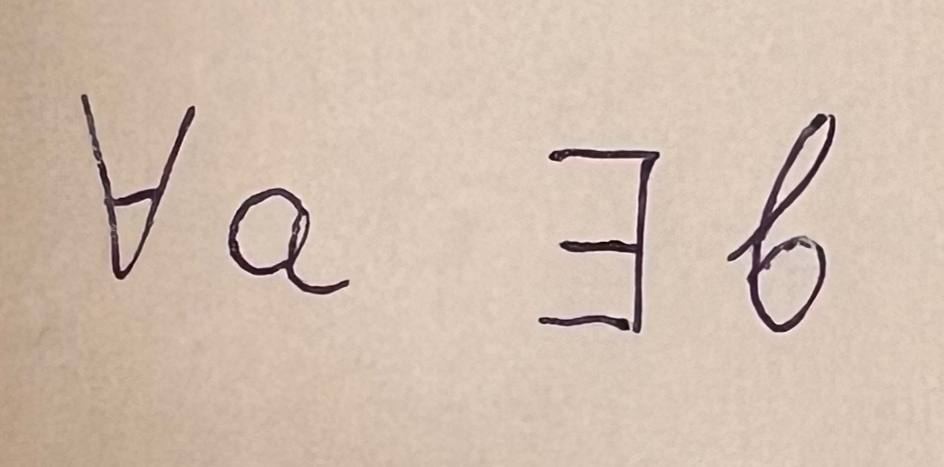 ∀ a ∃ b